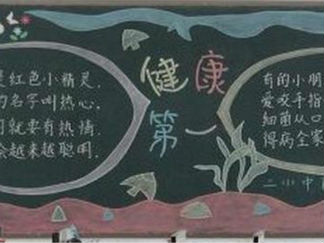 健康
第一
是红色小精灵,
的名字叫热心,
就要有热情,
会越来越聪明.
有的小朋
爱咬手指
细菌从口
得病全家
二小中